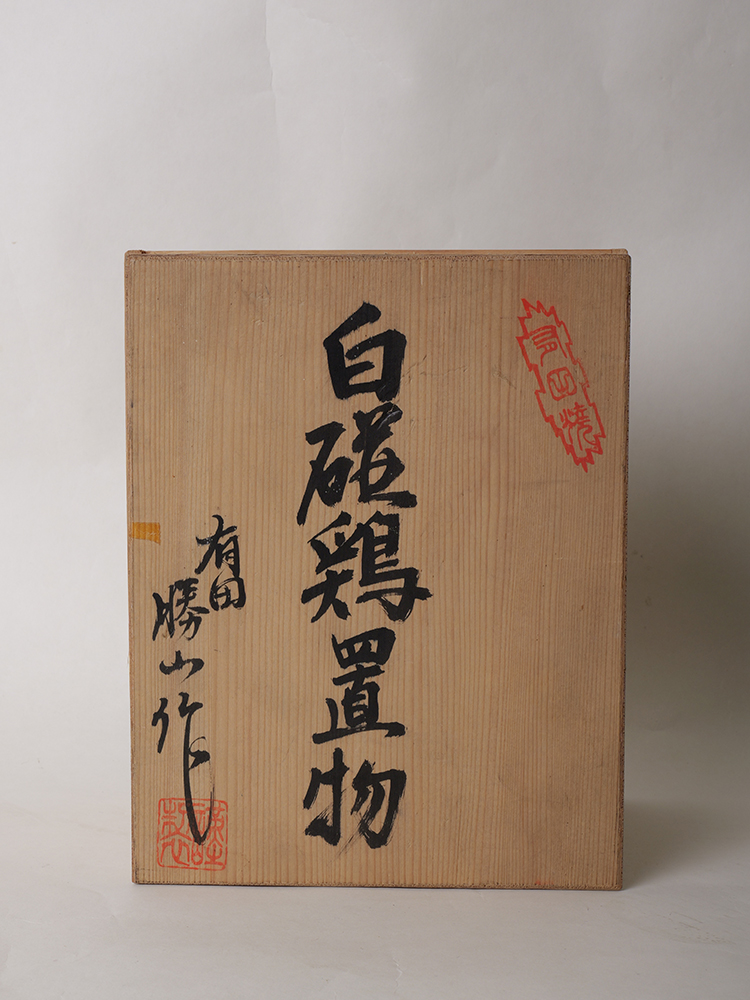 有田焼
白磁鶏置物
有田
勝山作